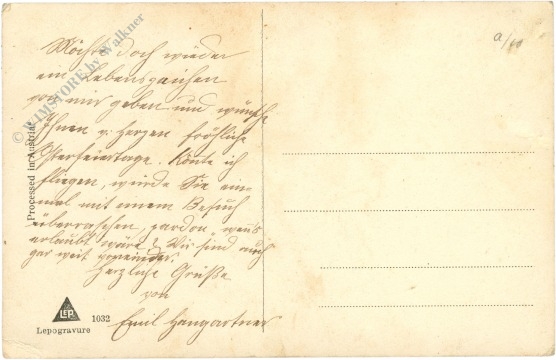 a/10
Möchte doch wieder
ein Lebenszeichen
von mir geben und wünsche
Ihnen v. Herzen fröhliche
Osterfeiertage. Könte ich
fliegen, würde Sie ein-
mal mit einem Besuch
überraschen, pardon, wenns
erlaubt wäre! Wir sind auch
gar weit voneinander.
Herzliche Grüße
von
Emil Hangartner
© WIMSTORE by Walkner
Processed in Austria
LEP
1032
Lepogravure